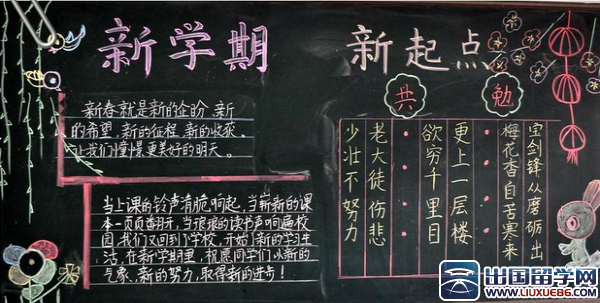 新学期
新起点
共勉
新春就是新的企盼 新
的希望、新的征程、新的收获。
让我们憧憬更美好的明天。
当上课的铃声清脆响起,当崭新的课
本一页页翻开,当琅琅的读书声响遍校
园,我们又回到了学校,开始了新的学习生
活,在新学期里,祝愿同学们以新的
气象、新的努力,取得新的进步!
宝剑锋从磨砺出
梅花香自苦寒来
更上一层楼
欲穷千里目
老大徒伤悲
少壮不努力
出国留学网
WWW.LIUXUE86.COM